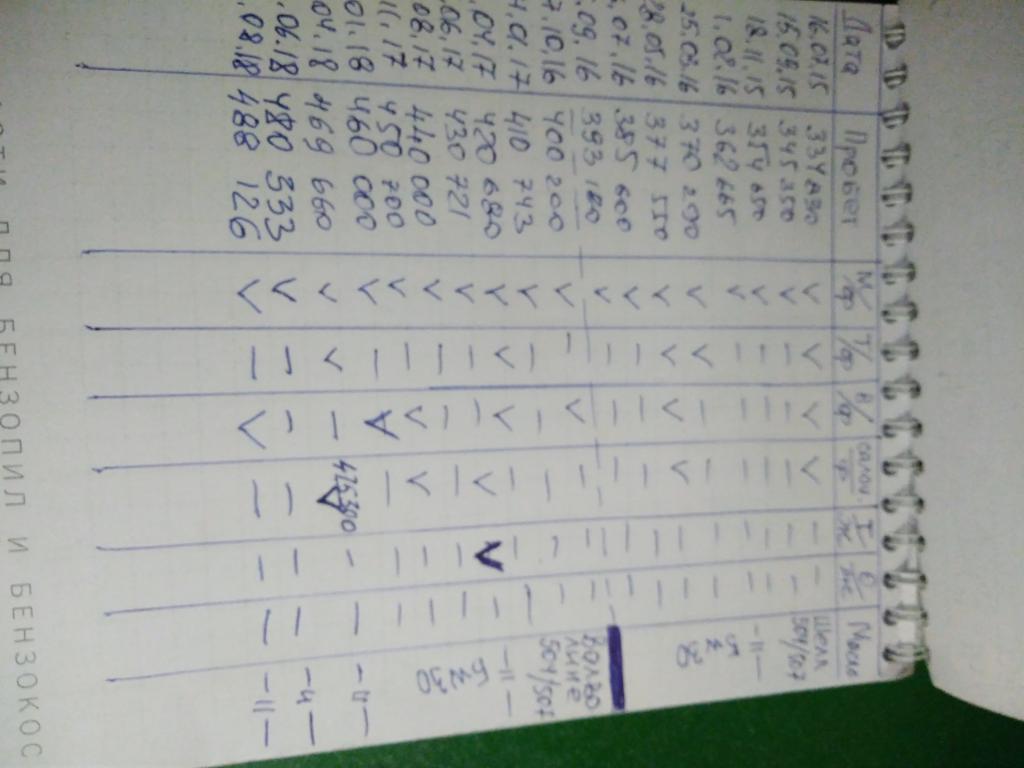 Дата Пробег М/ф Т/ф В/ф салон. ф Т ж О ж Масло
16.07.15 334 830 V V V V — — Шелл
15.09.15 345 350 V — — — — — 504/507
18.11.15 354 650 V — — — — — —11—
1.02.16 362 665 V — — — — — 5
25.03.16 370 200 V V — — — — 30
28.05.16 377 550 V V V V — —
.07.16 385 600 V — — — — —
.09.16 393 180 V — — — — — Вольво
7.10.16 400 200 V — V — — — лине
4.01.17 410 743 V — — — — — 504/507
.04.17 420 680 V V V V V — —11—
.06.17 430 721 V — — — — — 5
08.17 440 000 V — — V — — 30
11.17 450 700 V — V — — —
01.18 460 000 V — V 475300 V — — —11—
04.18 469 660 V V — —
.06.18 480 333 V — — — — — —11—
.08.18 488 126 V — V — — — —11—
ДЛЯ БЕНЗОПИЛ И БЕНЗОКОС